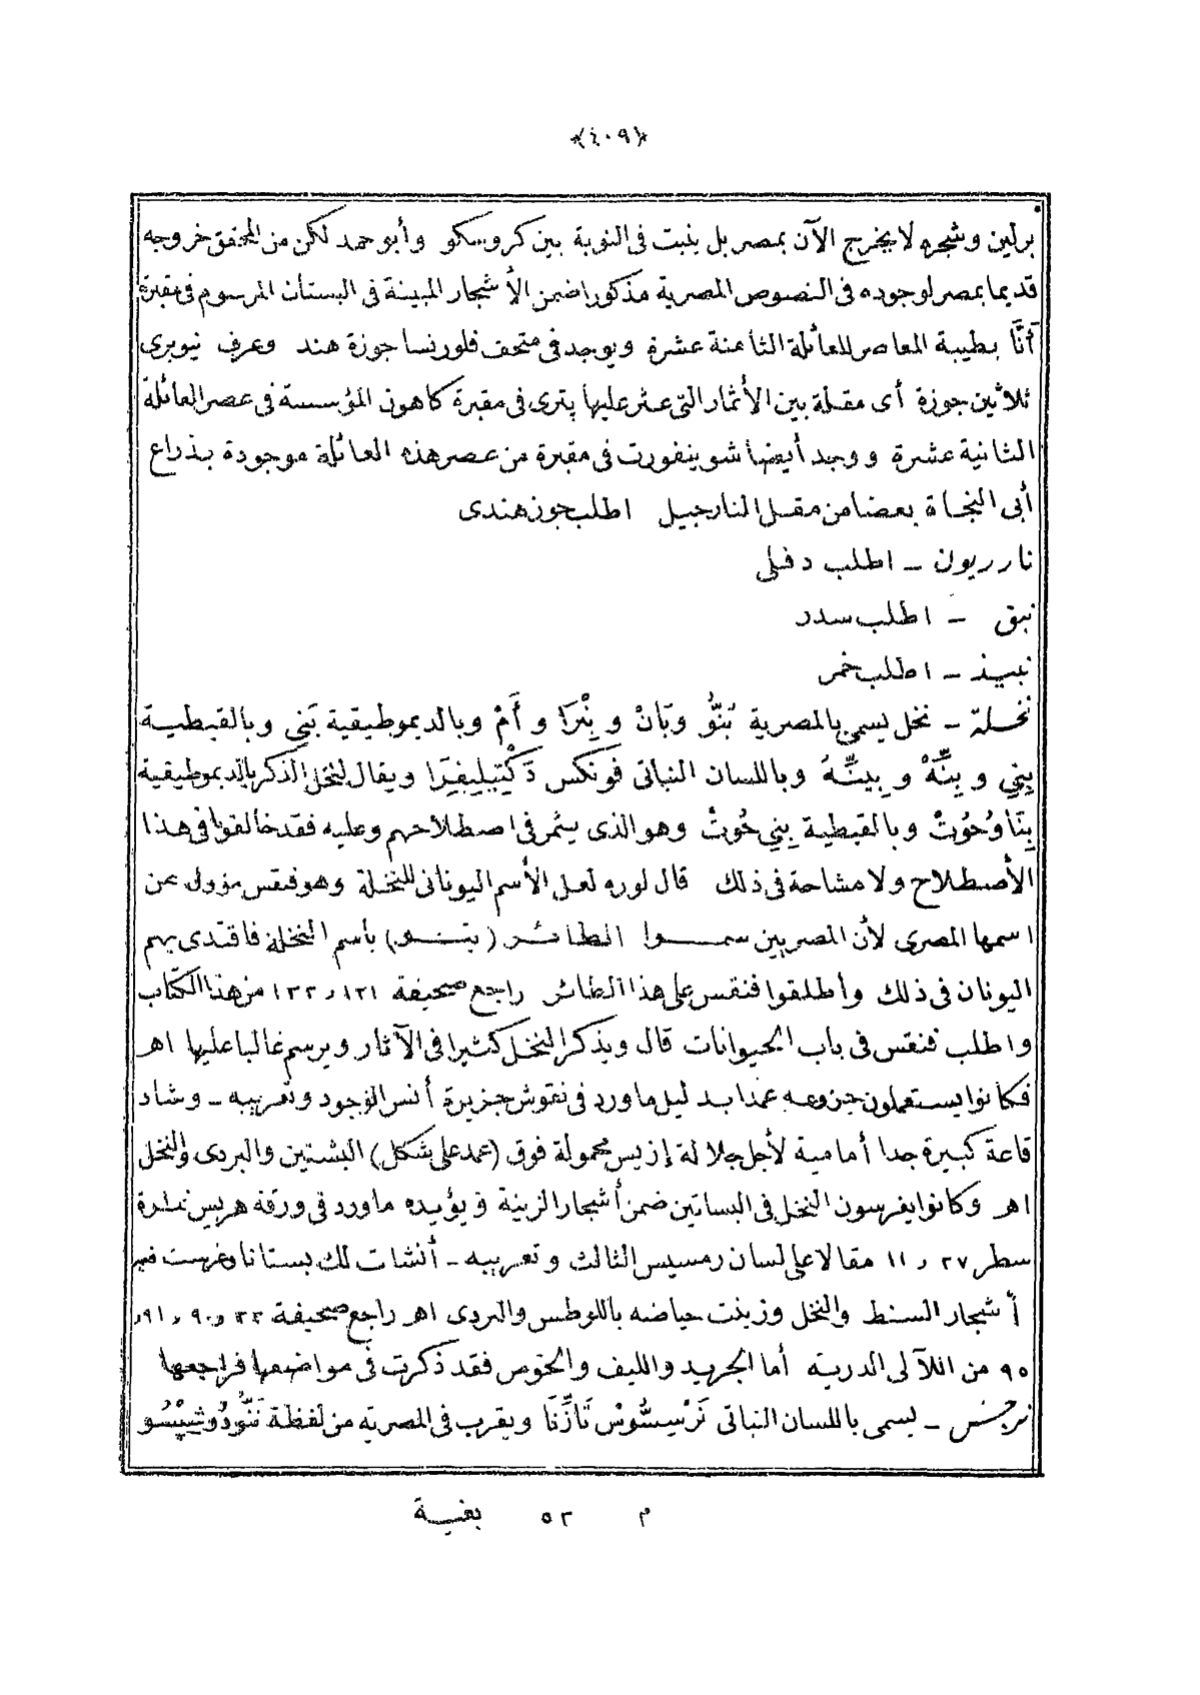 ﴿٤٠٩﴾
برلين وشجره لا يخرج الآن بمصر بل ينبت فى النوبة بين كروسكو وأبو حمد لكن من المحقق خروجه
قديما بمصر لوجوده فى النصوص المصرية مذكورا ضمن الأشجار المبينة فى البستان المرسوم فى مقبرة
أَنَّا بطيبة المعاصر للعائلة الثامنة عشرة ويوجد فى متحف فلورنسا جوزة هند وعرف نيوبرى
ثلاثين جوزة أى مقلة بين الأثمار التى عثر عليها بترى فى مقبرة كاهون المؤسسة فى عصر العائلة
الثانية عشرة ووجد أيضا شوينفورت فى مقبرة من عصر هذه العائلة موجودة بذراع
أبى النجاة بعضا من مقل النارجيل اطلب جوز هندى
نارريون ـ اطلب دفلى
نبق ـ اطلب سدر
نبيذ ـ اطلب خمر
نخلة ـ نخل يسمى بالمصرية بُنُّو وبَانْ و بِنْرَا و أَمْ وبالديموطيقية بَنِى وبالقبطية
بِنِى و بِنَّهْ و بِينَّهُ وباللسان النباتى فونكس دَكْتِيلِيفِرَا ويقال لنخل الذكر بالديموطيقية
بِنَاوْحُوتْ وبالقبطية بِنِى حُوتْ وهو الذى يثمر فى اصطلاحهم وعليه فقد خالفوا فى هذا
الأصطلاح ولا مشاحة فى ذلك قال لوره لعل الأسم اليونانى للنخلة وهو فنقس مؤول عن
اسمها المصرى لأن المصريين سموا الطائر (بنو) بأسم النخلة فاقتدى بهم
اليونان فى ذلك وأطلقوا فنقس على هذا الطائر راجع صحيفة ١٢١ و ١٢٢ من هذا الكتاب
واطلب فنقس فى باب الحيوانات قال ويذكر النخل كثيرا فى الآثار ويرسم غالبا عليها اهر
فكانوا يستعملون جزوعه عمدا بدليل ما ورد فى نقوش جزيرة أنس الوجود وتعريبه ـ وشاد
قاعة كبيرة جدا أمامية لأجل جلالة إزيس محمولة فوق (عمد على شكل) البشنين والبردى والنخل
اهر وكانوا يغرسون النخل فى البساتين ضمن أشجار الزينة ويؤيده ما ورد فى ورقة هريس نمرة
سطر ٢٧ و ١١ مقالا على لسان رمسيس الثالث وتعريبه ـ أنشات لك بستانا وغرست فيه
أشجار السنط والنخل وزينت حياضه باللوطس والبردى اهر راجع صحيفة ٢٢ و ٩٠ و ٩١ و
٩٥ من اللآلى الدرية أما الجريد والليف والخوص فقد ذكرت فى مواضعها فراجعها
نرجس ـ يسمى باللسان النباتى نَرْسِسُّوسْ تَازِّتَا ويقرب فى المصرية من لفظة نَنُّودُوشِپْسُو
م ٥٢ بغية